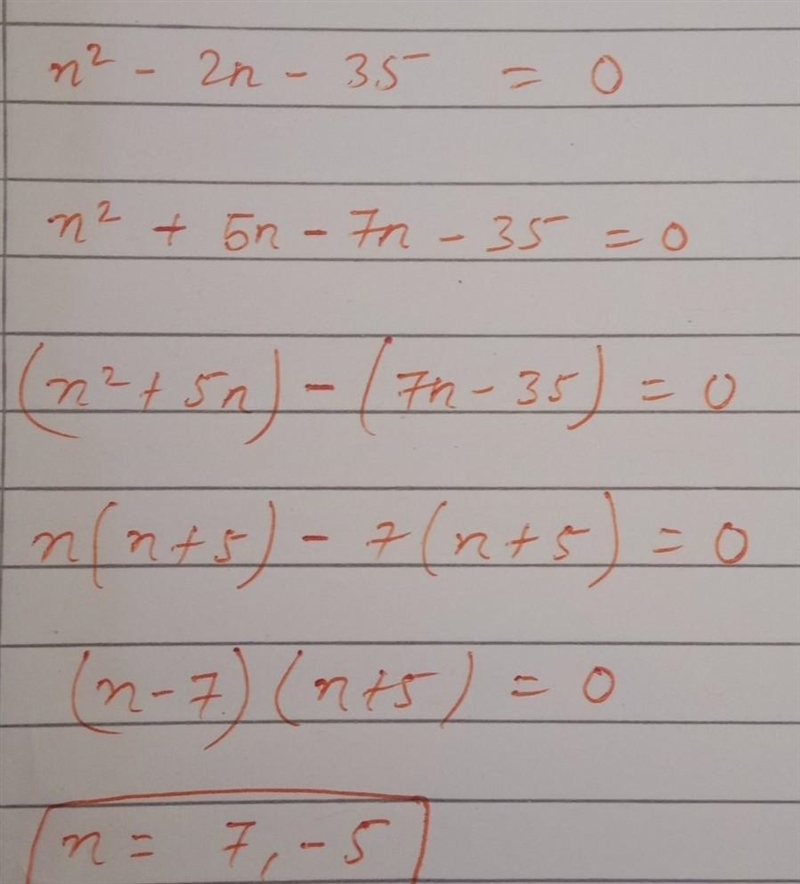 n² - 2n - 35 = 0
n² + 5n - 7n - 35 = 0
(n² + 5n) - (7n - 35) = 0
n(n + 5) - 7(n + 5) = 0
(n - 7)(n + 5) = 0
n = 7, -5